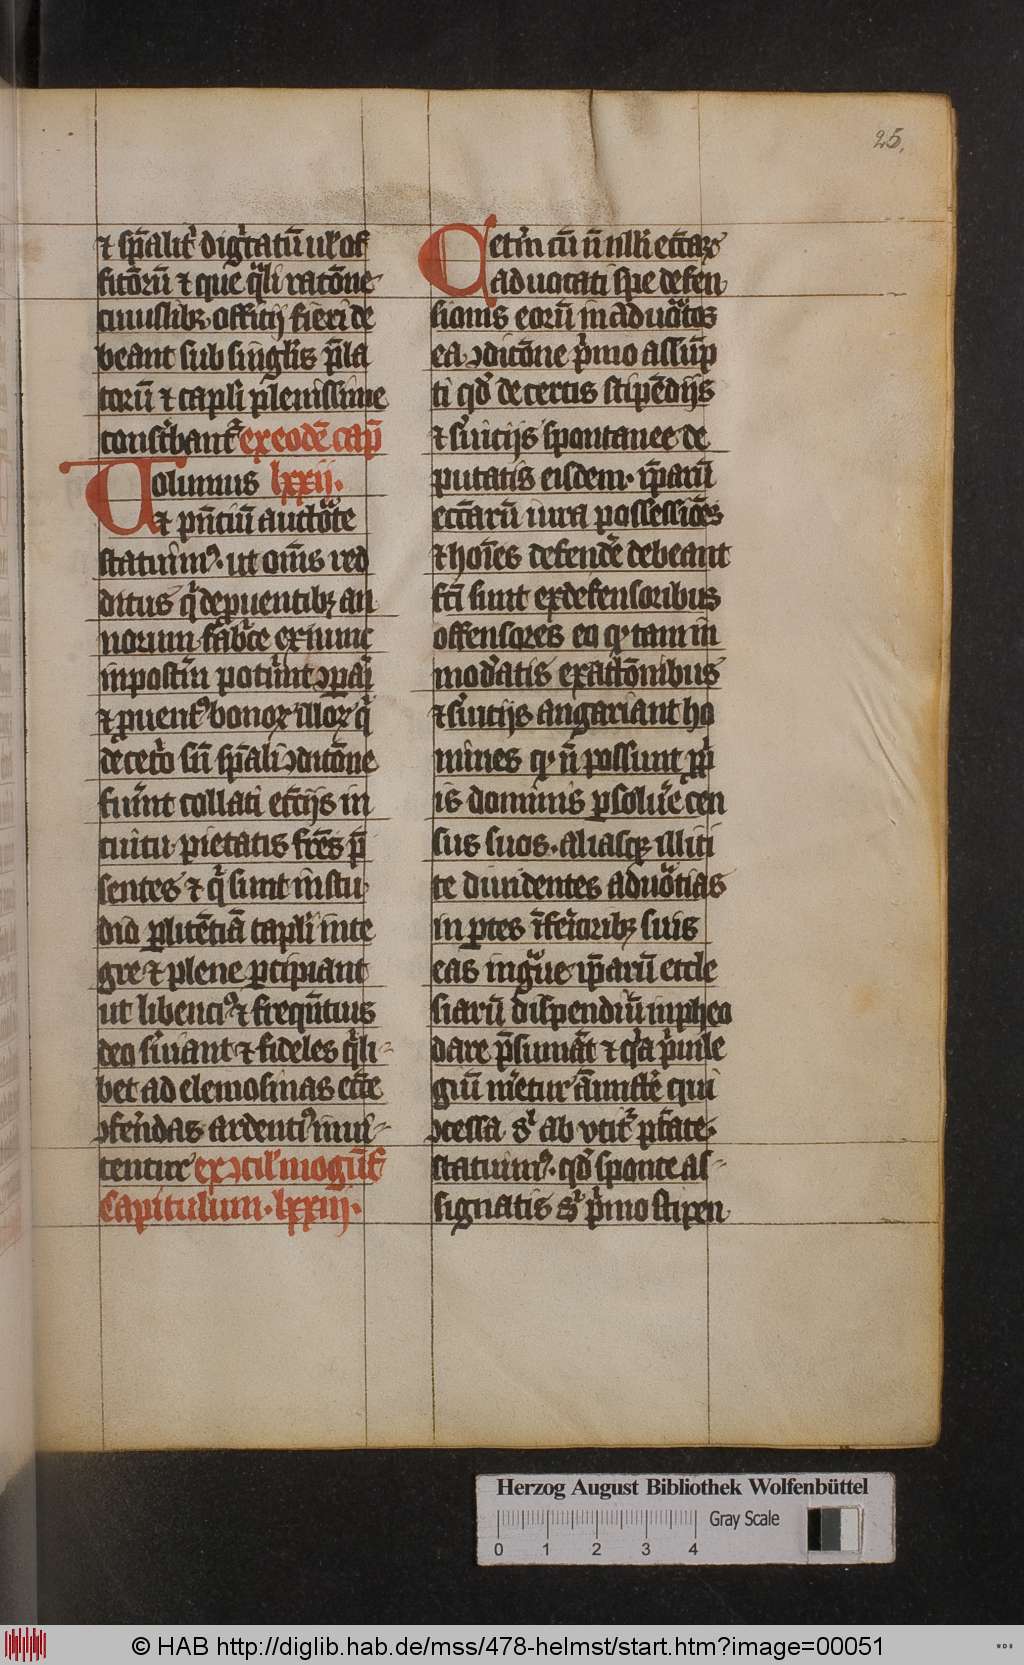 25.
⁊ sp̄alit̓ digᷓtatū ul̓ of
fitōrū ⁊ que qᷓli ratōne
cuiuslibꝫ officij fieri de
beant sub singl̓is p̄la
torū ⁊ capl̓i plenissime
conscͥbant᷑ ex eodē cap̄
Uolumus lxxij.
⁊ pn̄tiū auctōte
statuimꝰ. ut om̄s red
ditus q̓ de ꝓuentibꝫ an
norum fabᷓce ex nunc
in postm̄ potͥnt ꝯꝑaͥ
⁊ ꝓuentꝰ bonoꝝ illoꝝ q̓
de cet̓o sn̄ sp̄ali ꝯditōne
fuͥnt collati ecc̄ijs in
tuitu pietatis fr̄es p̄
sentes ⁊ q̓ sunt in stu
dio ꝑ licētiā capl̓i inte
gre ⁊ plene ꝑcipiant
ut libenciꝰ ⁊ freqn̄tius
deo s̓uiant ⁊ fideles qᷓli-
bet ad elemosinas ecc̄e
ꝯfen̓das ardentiꝰ inui-
tentur ex ꝯcil̓ mogūt̄
Capitulum. lxxiij.
Cetm̓ cū n̄ nlli ecc̄aꝝ
aduocati spe defen
sionis eorū in aduōtos
ea ꝯditōne pͥmo assūp
ti qd̓ de certis stipēdijs
⁊ s̓uicijs spontanee de
putatis eisdem. ip̄arū
ecc̄arū iura possessiōes
⁊ hoīes defendͤ debeant
fc̄i sunt ex defensoribus
offensores eo qꝫ tam in
mod̓atis exactōnibus
⁊ s̓uicijs angariant ho
mines qꝫ n̄ possunt ꝓpͥ
is dominis ꝑsoluͤe cen
sus suos. aliasqꝫ illici
te diuidentes aduōtias
in ꝑtes īfeͥoribꝫ suis
eas in gᷓue ip̄arū eccle
siarū dispendiū inpheo
dare p̄sumāt ⁊ qᷓ pͥuile
giū m̓etur āmitt̓e qui
ꝯcessa s᷑ ab vtit᷑ p̄tate.
statuimꝰ. qd̓ sponte as-
signatis s᷑ pͥmo stipen
Herzog August Bibliothek Wolfenbüttel
Gray Scale
0 1 2 3 4
© HAB http://diglib.hab.de/mss/478-helmst/start.htm?image=00051